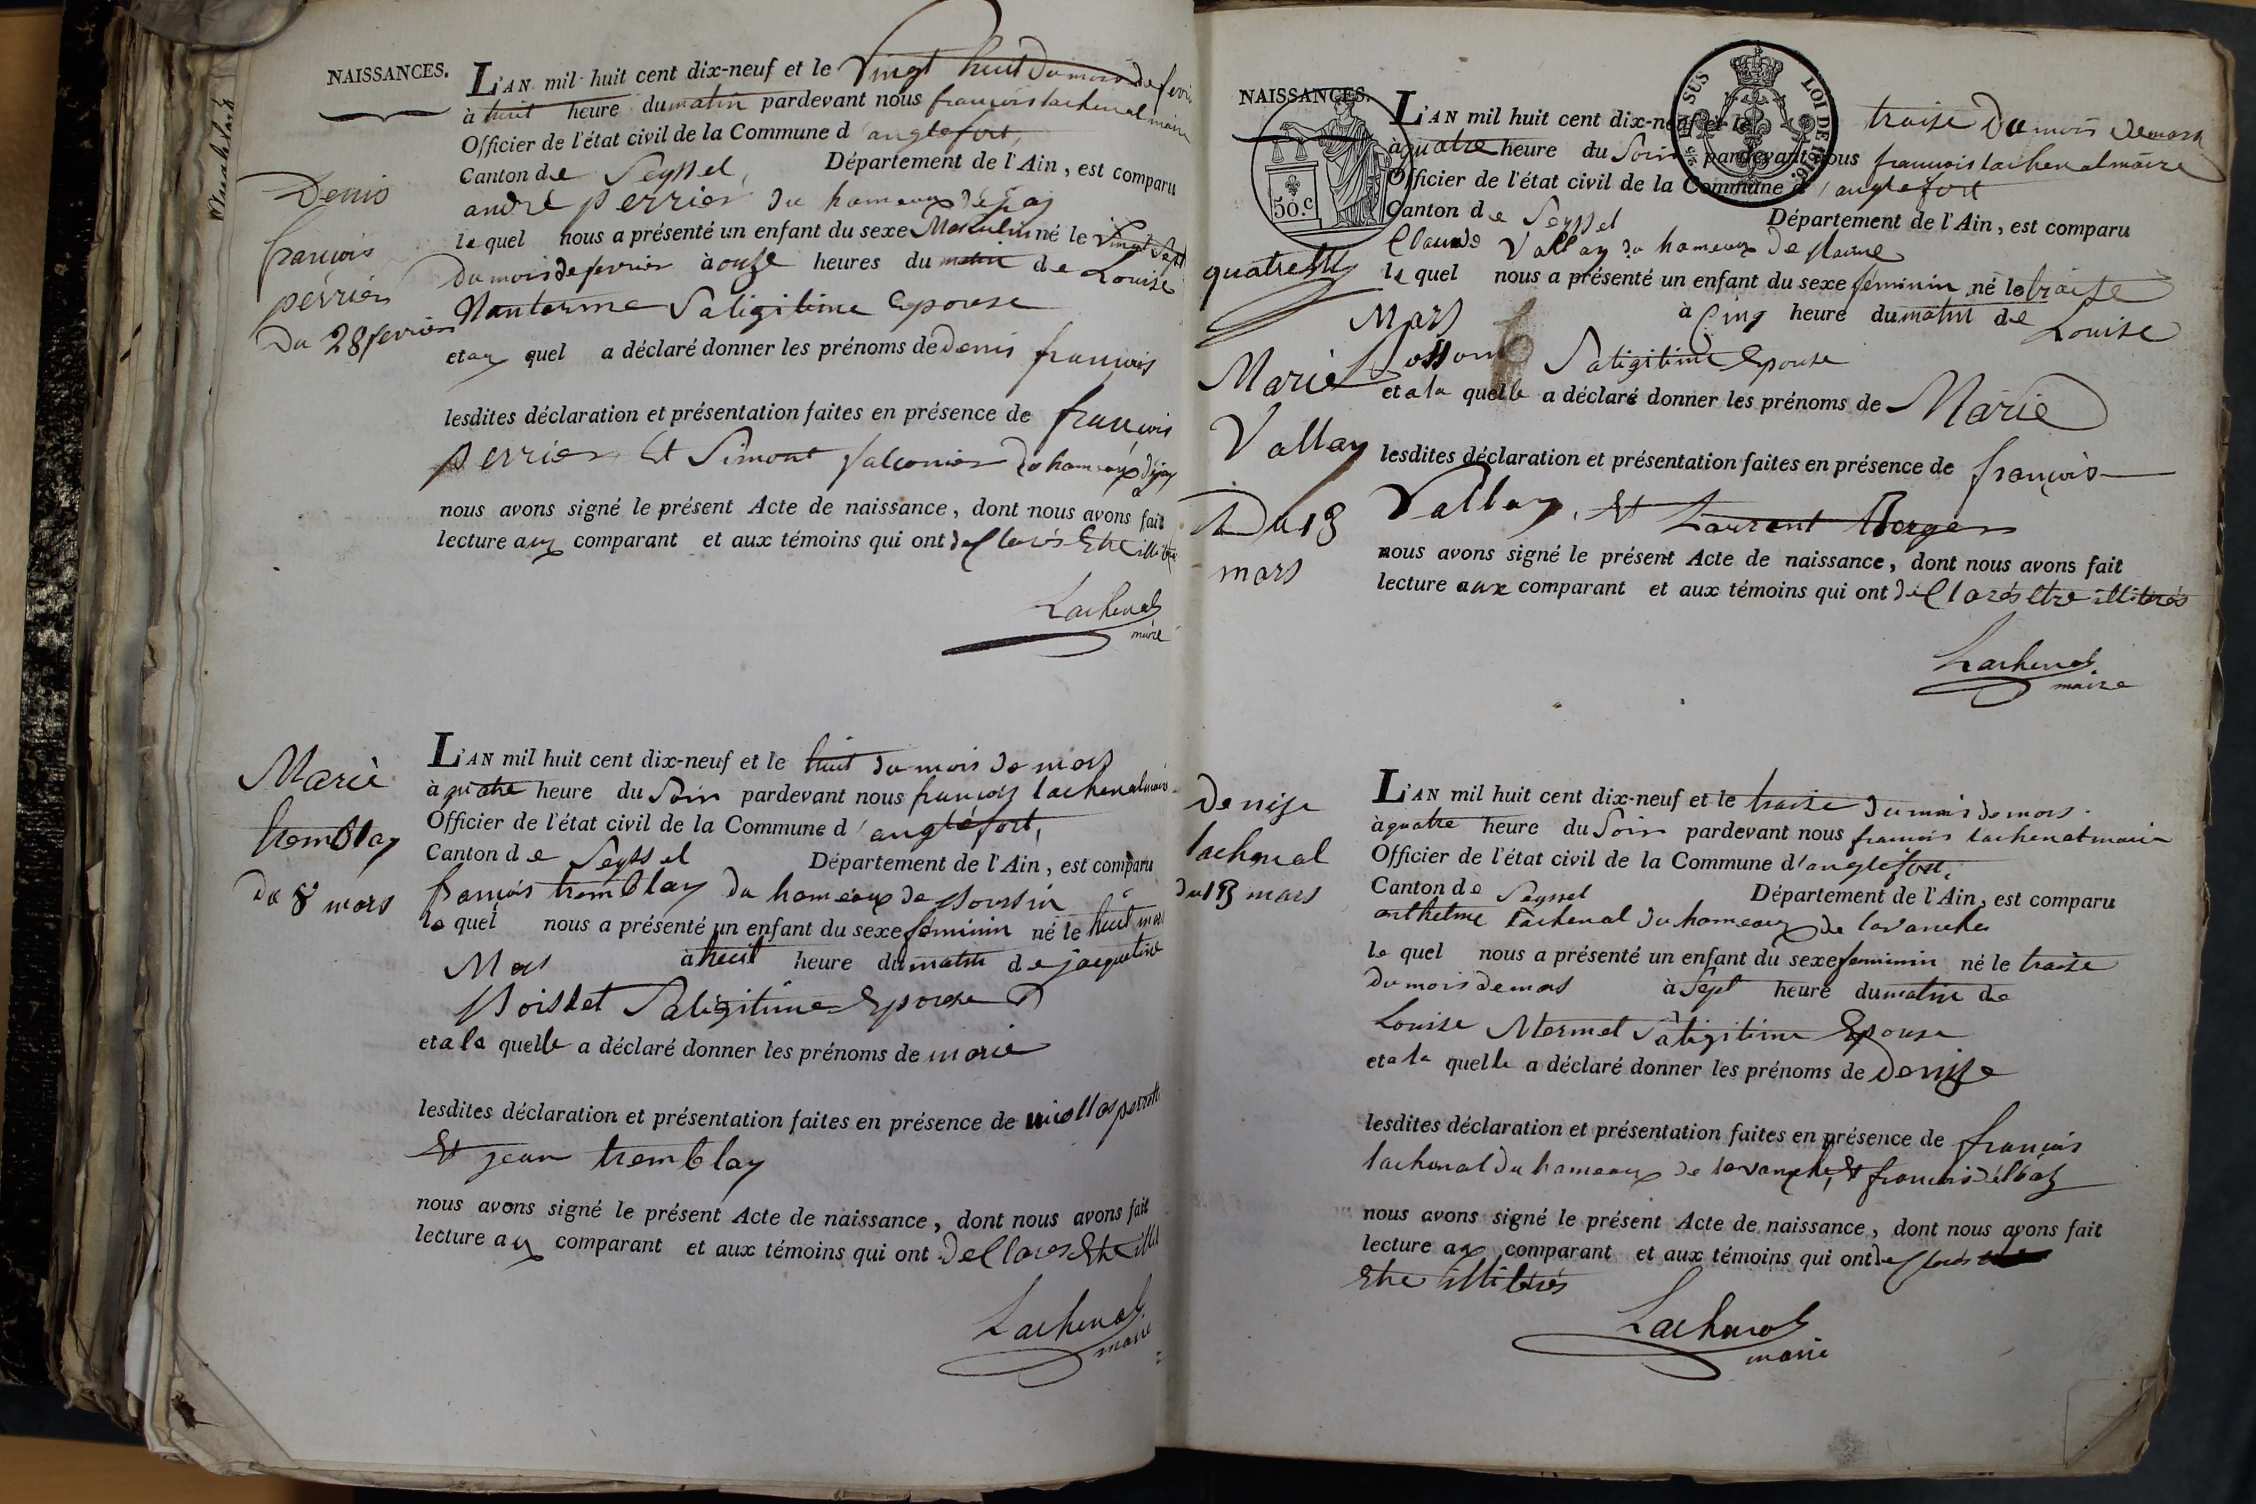 NAISSANCES.
L'AN mil huit cent dix-neuf et le Vingt huit du mois de fevri
à huit heure du matin pardevant nous francois lachenal maire
Officier de l'état civil de la Commune d'anglefort,
Canton de Seyssel, Département de l'Ain, est comparu
andré perrier du hameaux
le quel nous a présenté un enfant du sexe Masculin né le Vingt Sept
du mois de fevrier à onze heures du matin de Louise
Nanterme Sa ligitime Epouse
et au quel a déclaré donner les prénoms de Denis francois
lesdites déclaration et présentation faites en présence de francois
perrier Et Simont falconier du hameaux
nous avons signé le présent Acte de naissance, dont nous avons fait
lecture aux comparant et aux témoins qui ont declarés Etre
Lachenal
maire
Denis
francois
perrier
Du 28 fevrier
Marie
tremblay
du 8 mars
L'AN mil huit cent dix-neuf et le huit du mois de mars
à quatre heure du Soir pardevant nous francois lachenal maire
Officier de l'état civil de la Commune d'anglefort,
Canton de Seyssel Département de l'Ain, est comparu
francois tremblay du hameaux de
le quel nous a présenté un enfant du sexe féminin né le huit
Mars à huit heure du matin de jacqueline
Sa ligitime Epouse
et a la quelle a déclaré donner les prénoms de marie
lesdites déclaration et présentation faites en présence de nicollas
Et jean tremblay
nous avons signé le présent Acte de naissance, dont nous avons fait
lecture aux comparant et aux témoins qui ont declarés Etre
Lachenal
maire
NAISSANCES.
SUS
LOI DE 1816.
50.c
L'AN mil huit cent dix-neuf et le traise Du mois de mars
à quatre heure du Soir pardevant nous francois lachenal maire
Officier de l'état civil de la Commune d'anglefort
Canton de Seyssel Département de l'Ain, est comparu
Claude Vallay du hameaux de
le quel nous a présenté un enfant du sexe féminin né le traise
Mars à Cinq heure du matin de Louise
Sa ligitime Epouse
et a la quelle a déclaré donner les prénoms de Marie
lesdites déclaration et présentation faites en présence de francois
Vallay, Et Laurent Berger
nous avons signé le présent Acte de naissance, dont nous avons fait
lecture aux comparant et aux témoins qui ont déclarés etre illitérés
Lachenal
maire
Marie
Vallay
Du 13
mars
Denise
lachenal
du 13 mars
L'AN mil huit cent dix-neuf et le traise du mois de mars.
à quatre heure du Soir pardevant nous francois lachenal maire
Officier de l'état civil de la Commune d'anglefort.
Canton de Seyssel Département de l'Ain, est comparu
anthelme lachenal du hameaux de lavanche
le quel nous a présenté un enfant du sexe feminin né le traise
du mois de mars à Sept heure du matin de
Louise Mermet Sa ligitime Epouse
et a la quelle a déclaré donner les prénoms de Denise
lesdites déclaration et présentation faites en présence de francois
lachenal du hameaux de lavanche, Et francois
nous avons signé le présent Acte de naissance, dont nous avons fait
lecture aux comparant et aux témoins qui ont declarés
Etre illitérés
Lachenal
maire